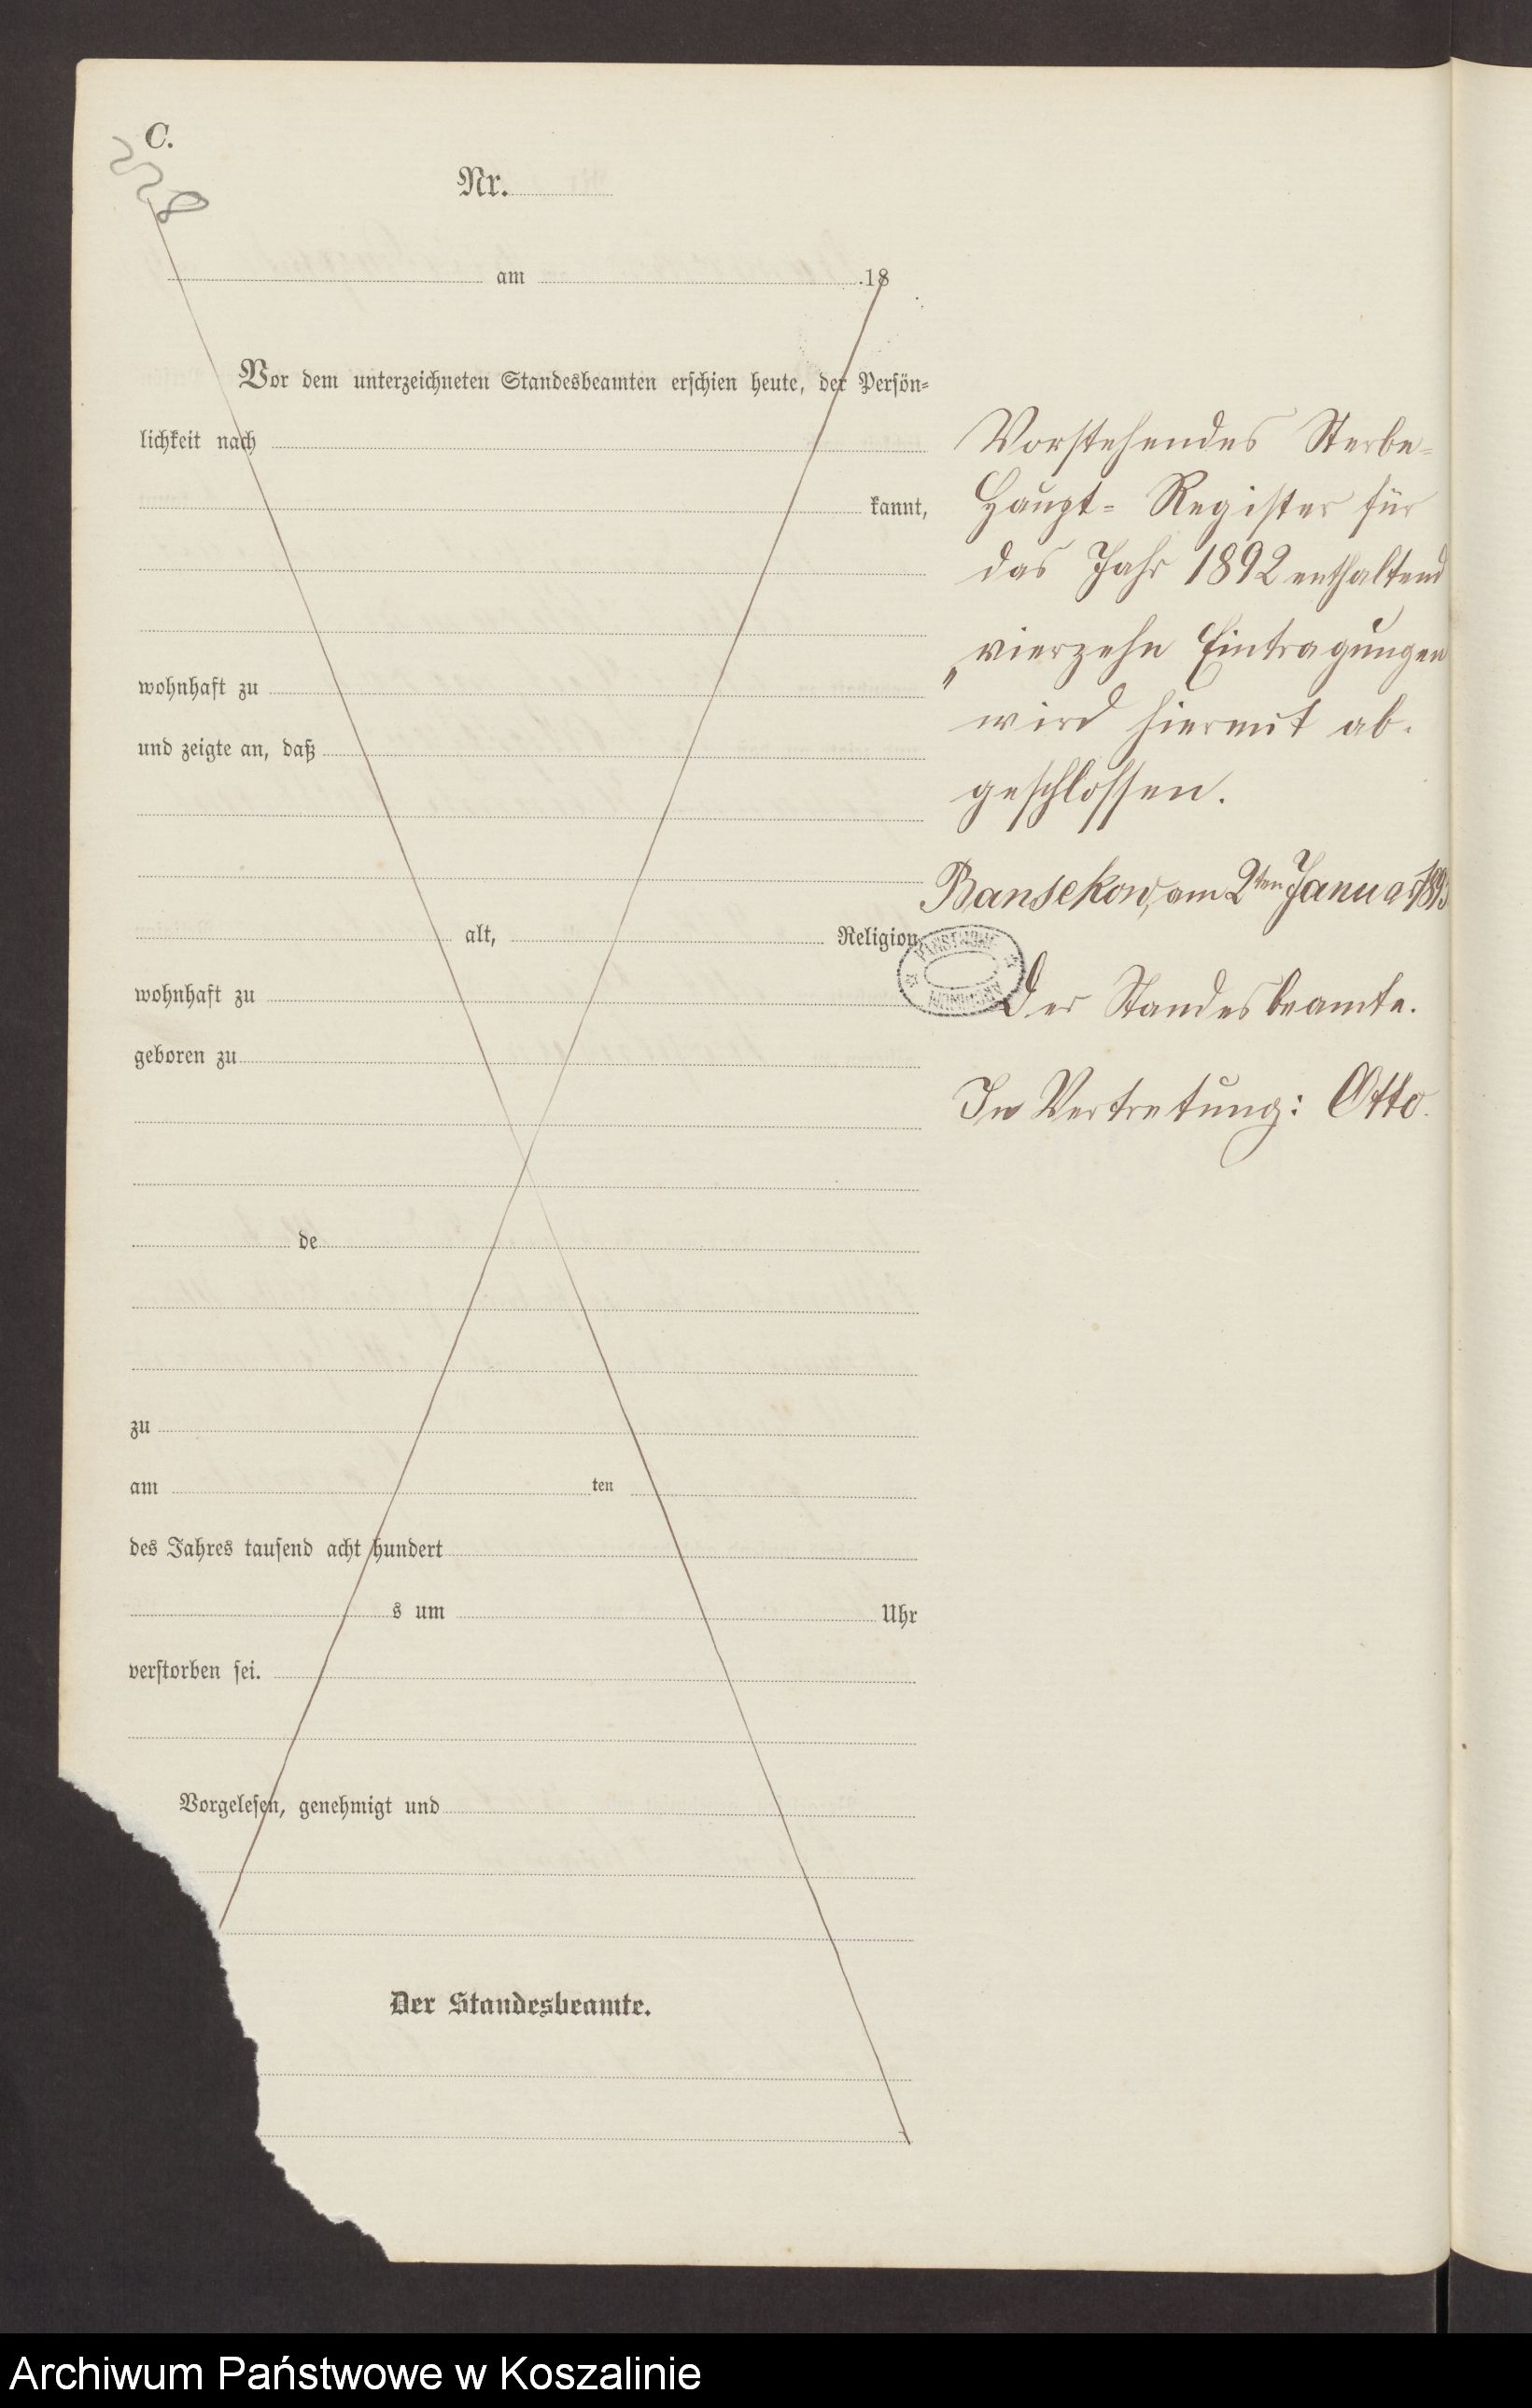 C.
228
Nr.
am 18
Vor dem unterzeichneten Standesbeamten erschien heute, der Persön-
lichkeit nach
kannt,
wohnhaft zu
und zeigte an, daß
alt, Religion,
wohnhaft zu
geboren zu
de
zu
am ten
des Jahres tausend acht hundert
s um Uhr
verstorben sei.
Vorgelesen, genehmigt und
Der Standesbeamte.
Vorstehendes Sterbe-
Haupt-Register für
das Jahr 1892 enthaltend
„vierzehn Eintragungen
wird hiermit ab-
geschlossen.
Bansekow, am 2ten Januar 1893
Der Standesbeamte.
In Vertretung: Otto.
Archiwum Państwowe w Koszalinie